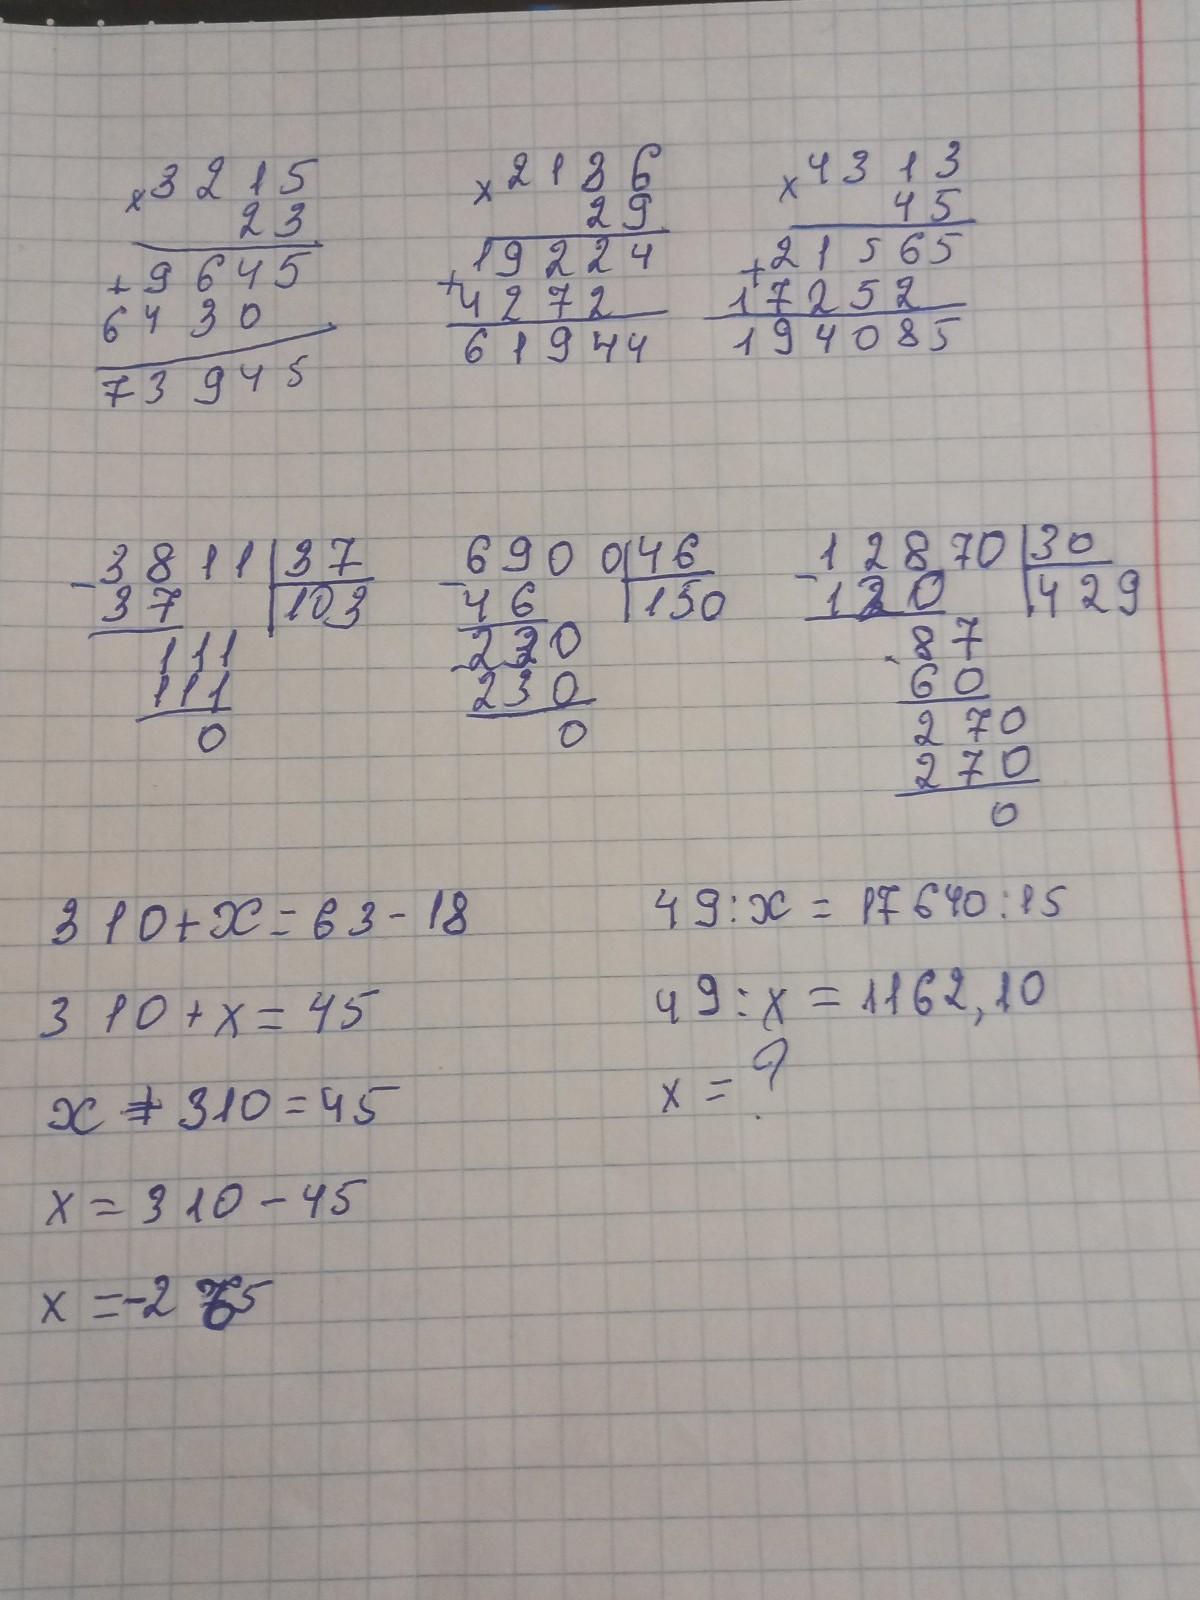 ×3215 ×2136 ×4313
23 29 45
+9645 19224 +21565
6430 +4272 17252
73945 61944 194085
-3811 37 -6900 46 -12870 30
37 103 46 150 120 429
111 -230 -87
111 230 60
0 0 270
270
0
310+x=63-18 49:x=17640:15
310+x=45 49:x=1162,10
x+310=45 x=?
x=310-45
x=-265